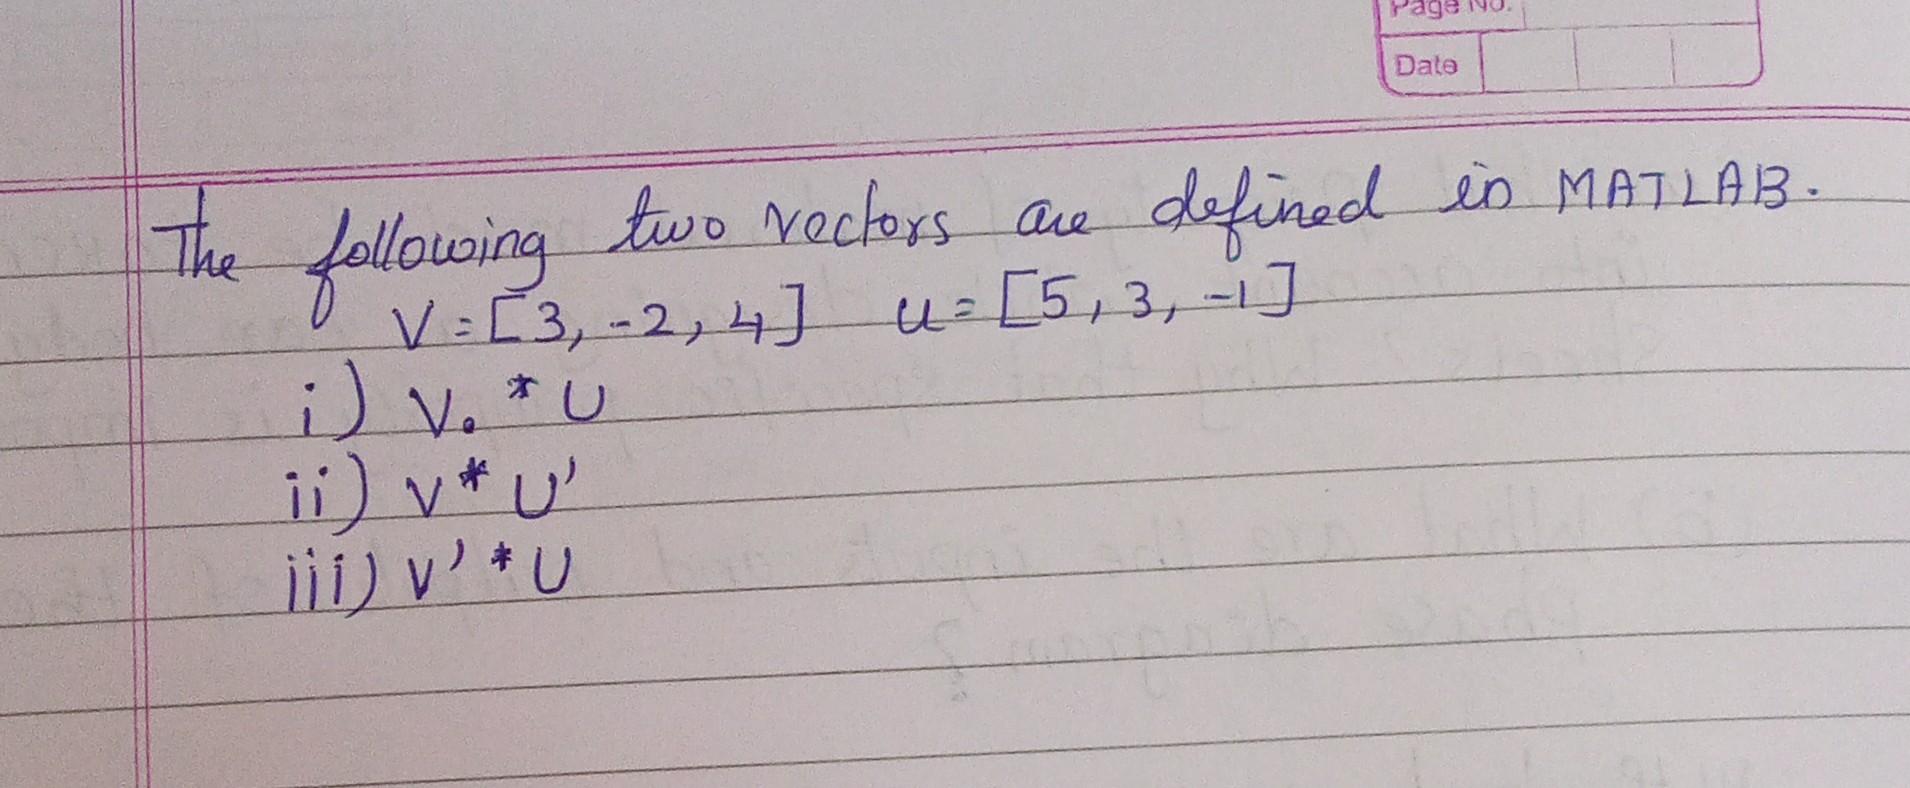 Page No.
Date
The following two vectors are defined in MATLAB.
V = [3, -2, 4] u = [5, 3, -1]
i) V. * U
ii) V * U'
iii) V' * U